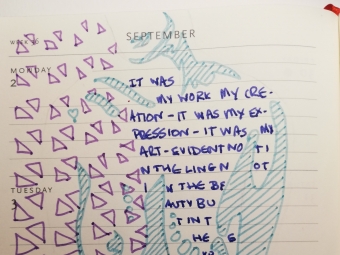 SEPTEMBER
WEEK 36
MONDAY
2
IT WAS
MY WORK MY CRE-
ATION - IT WAS MY EX-
PRESSION - IT WAS MY
ART - EVIDENT NO TI
N THE LINE N OT
I N THE BE
AUTY BU
T IN T
HE S
TUESDAY
3